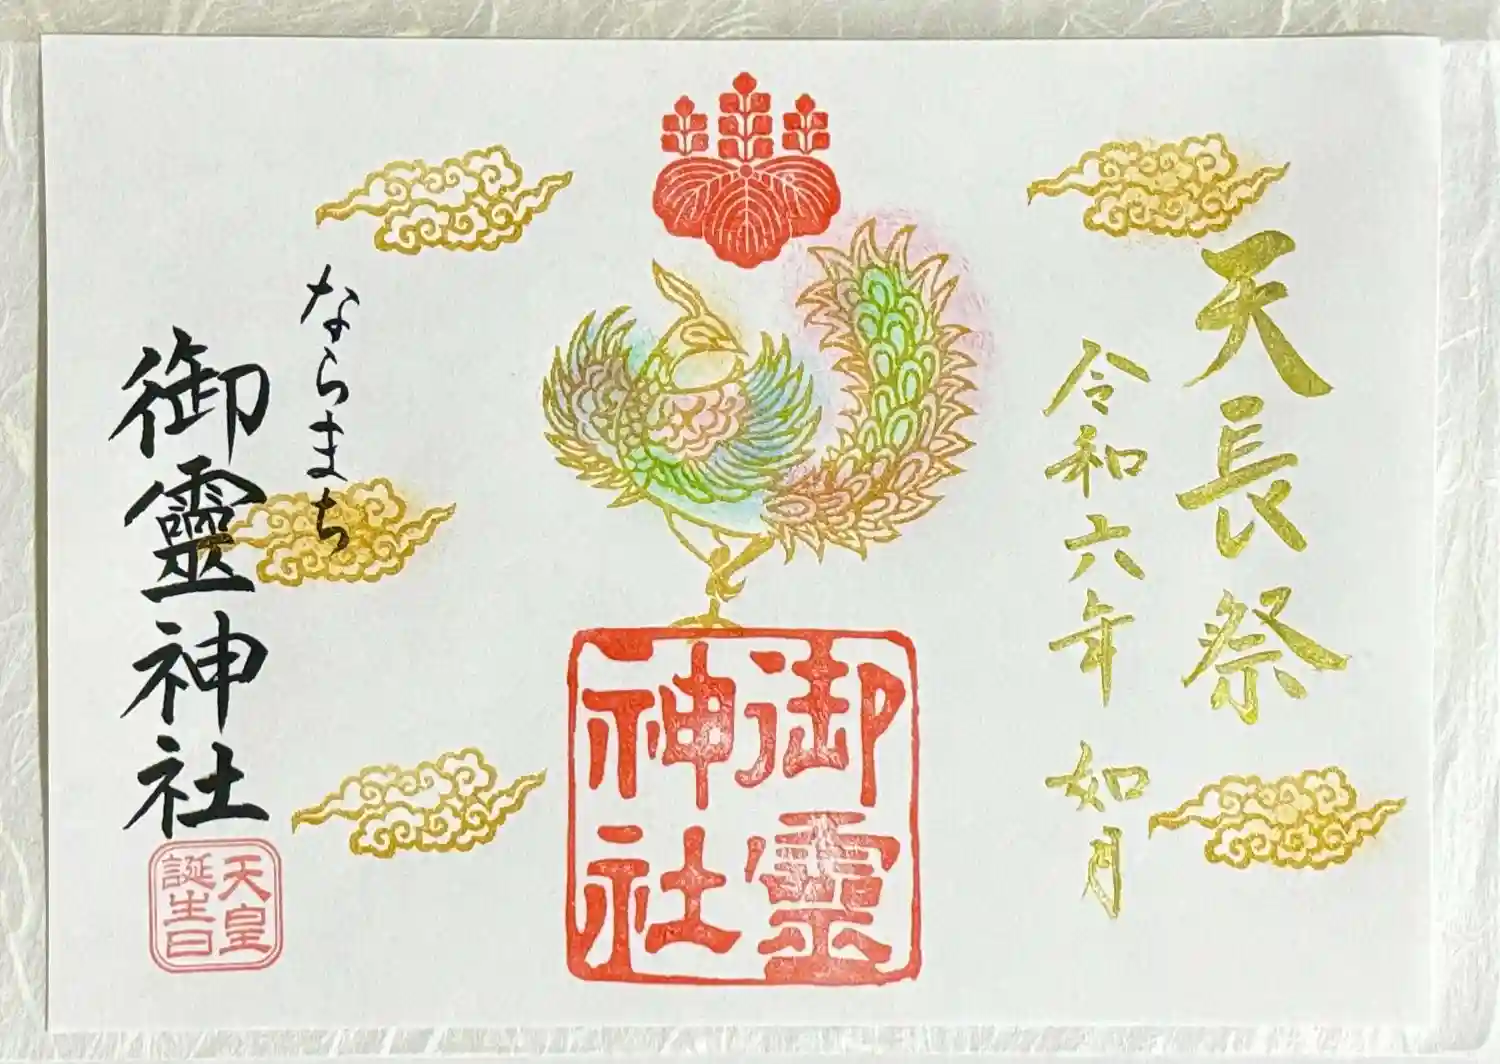 天長祭
令和六年 如月
御靈神社
ならまち
御靈神社
天皇誕生日